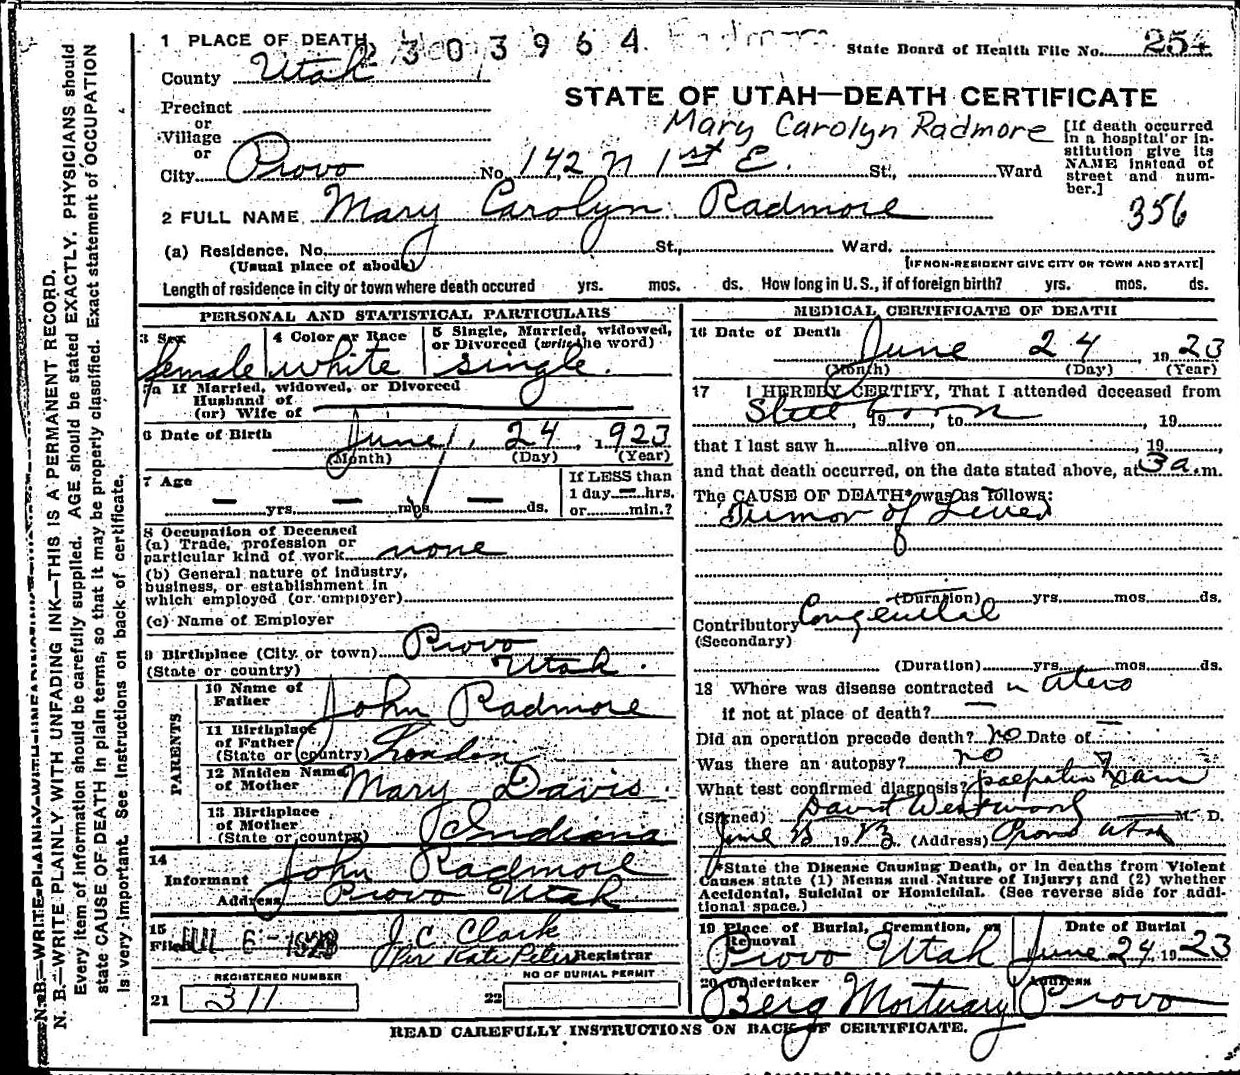 1 PLACE OF DEATH 2303964
State Board of Health File No. 254
County Utah
STATE OF UTAH—DEATH CERTIFICATE
Precinct
or
Village
or
Mary Carolyn Radmore
City Provo No. 142 N 1st E. St., Ward
[If death occurred
in a hospital or in-
stitution give its
NAME instead of
street and num-
ber.]
356
2 FULL NAME Mary Carolyn Radmore
(a) Residence. No. St., Ward.
(Usual place of abode) [IF NON-RESIDENT GIVE CITY OR TOWN AND STATE]
Length of residence in city or town where death occured yrs. mos. ds. How long in U. S., if of foreign birth? yrs. mos. ds.
PERSONAL AND STATISTICAL PARTICULARS
3 Sex
female
4 Color or Race
white
5 Single, Married, widowed,
or Divorced (write the word)
single.
5a If Married, widowed, or Divorced
Husband of
(or) Wife of
6 Date of Birth June 24, 1923
(Month) (Day) (Year)
7 Age
— yrs. — mos. — ds.
If LESS than
1 day — hrs.
or min.?
8 Occupation of Deceased
(a) Trade, profession or
particular kind of work none
(b) General nature of industry,
business, or establishment in
which employed (or employer)
(c) Name of Employer
9 Birthplace (City or town) Provo
(State or country) Utah.
PARENTS
10 Name of
Father John Radmore
11 Birthplace
of Father
(State or country) London
12 Maiden Name
of Mother Mary Davis.
13 Birthplace
of Mother
(State or country) Indiana
14
Informant John Radmore
Address Provo Utah
15
Filed JUL 6-1923 J. C. Clark
Per Kate Peters Registrar
REGISTERED NUMBER
21 311
NO OF BURIAL PERMIT
22
MEDICAL CERTIFICATE OF DEATH
16 Date of Death June 24, 1923
(Month) (Day) (Year)
17 I HEREBY CERTIFY, That I attended deceased from
Still born, 19 , to , 19
that I last saw h alive on , 19
and that death occurred, on the date stated above, at 3 a.m.
The CAUSE OF DEATH* was as follows:
Tumor of Liver
(Duration) yrs. mos. ds.
Contributory Congenital
(Secondary)
(Duration) yrs. mos. ds.
18 Where was disease contracted in utero
if not at place of death? —
Did an operation precede death? no Date of —
Was there an autopsy? no
What test confirmed diagnosis? Exam
(Signed) David Westwood M. D.
June 1923 (Address) Provo Utah
*State the Disease Causing Death, or in deaths from Violent
Causes state (1) Means and Nature of Injury; and (2) whether
Accidental, Suicidal or Homicidal. (See reverse side for addi-
tional space.)
19 Place of Burial, Cremation, or
Removal
Provo Utah
Date of Burial
June 24 1923
20 Undertaker
Berg Mortuary
Address
Provo
READ CAREFULLY INSTRUCTIONS ON BACK OF CERTIFICATE.
N. B.—WRITE PLAINLY WITH UNFADING INK—THIS IS A PERMANENT RECORD.
Every item of information should be carefully supplied. AGE should be stated EXACTLY. PHYSICIANS should
state CAUSE OF DEATH in plain terms, so that it may be properly classified. Exact statement of OCCUPATION
is very important. See instructions on back of certificate.